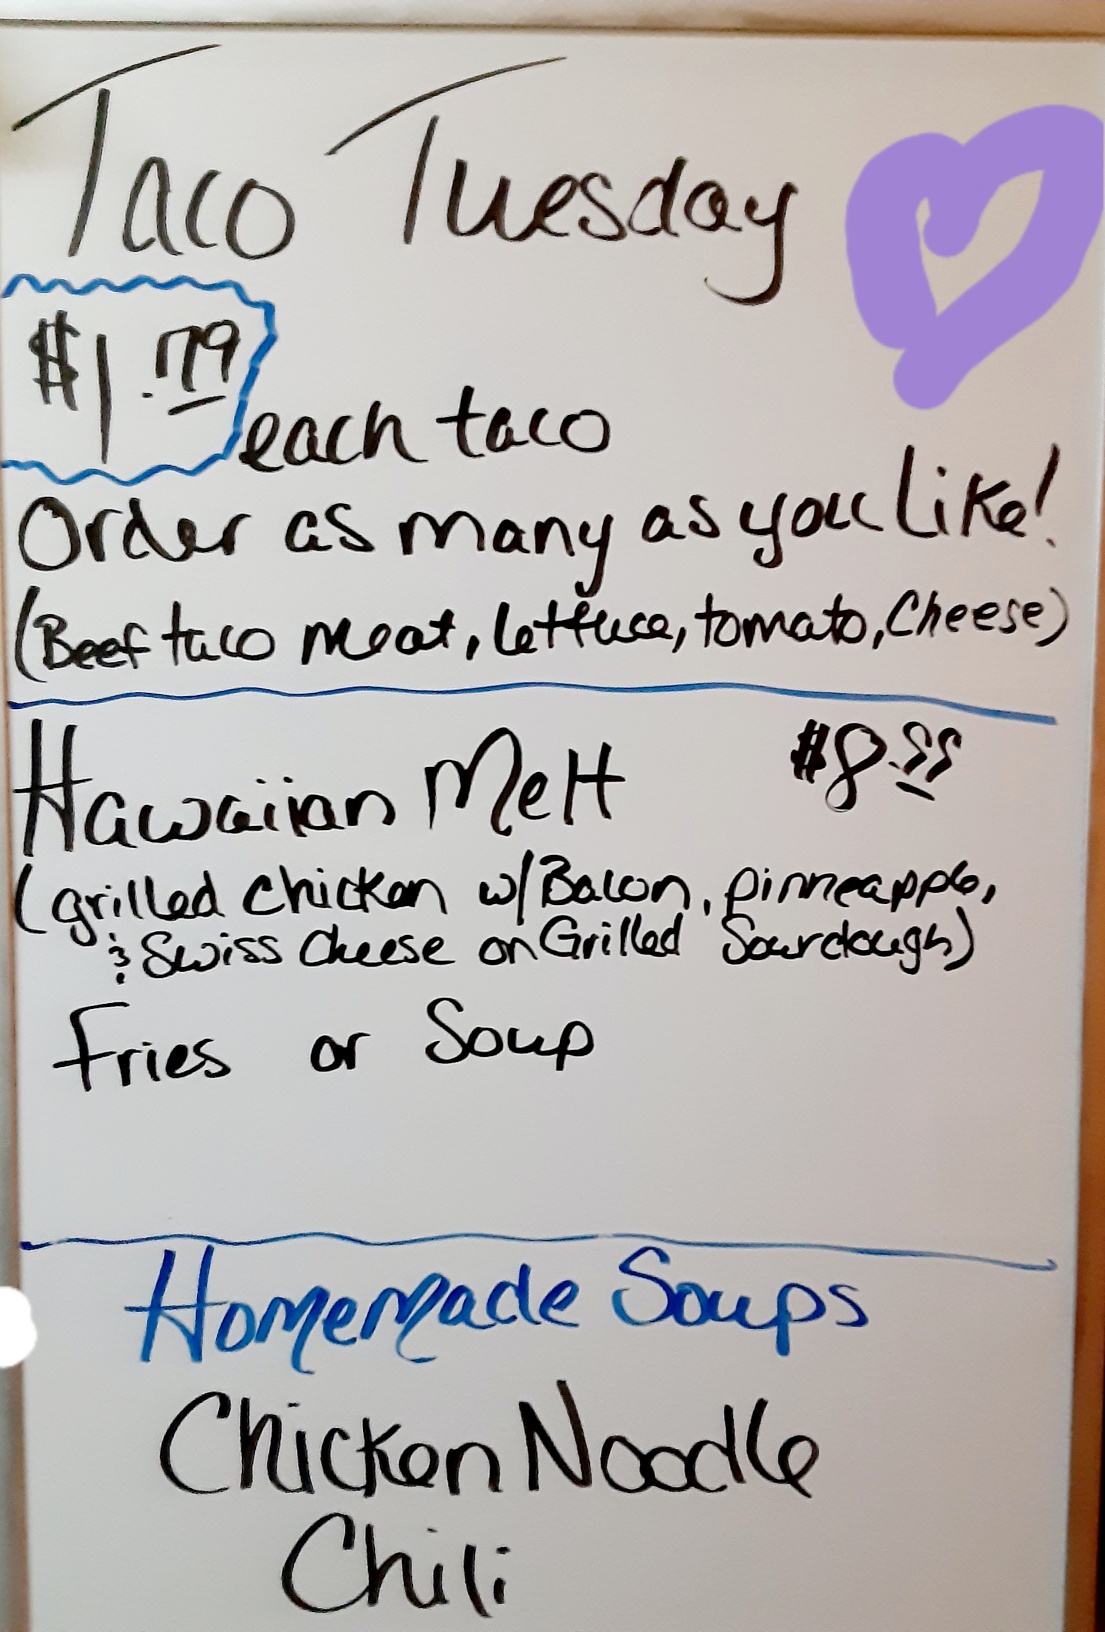 Taco Tuesday
$1.79
each taco
Order as many as you like!
(Beef taco meat, lettuce, tomato, Cheese)
Hawaiian Melt $8.99
(grilled chicken w/Bacon, pinneapple,
& Swiss Cheese on Grilled Sourdough)
Fries or Soup
Homemade Soups
Chicken Noodle
Chili